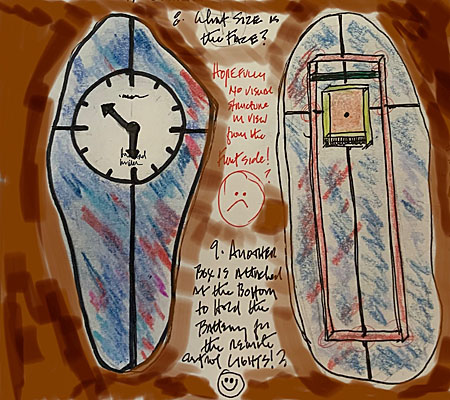 8. What Size is
the Face?
Hopefully
no visual
structure
in view
from the
front side!
?
9. Another
Box is Attached
at the Bottom
to Hold the
Battery for
the remote
control LIGHTS!?